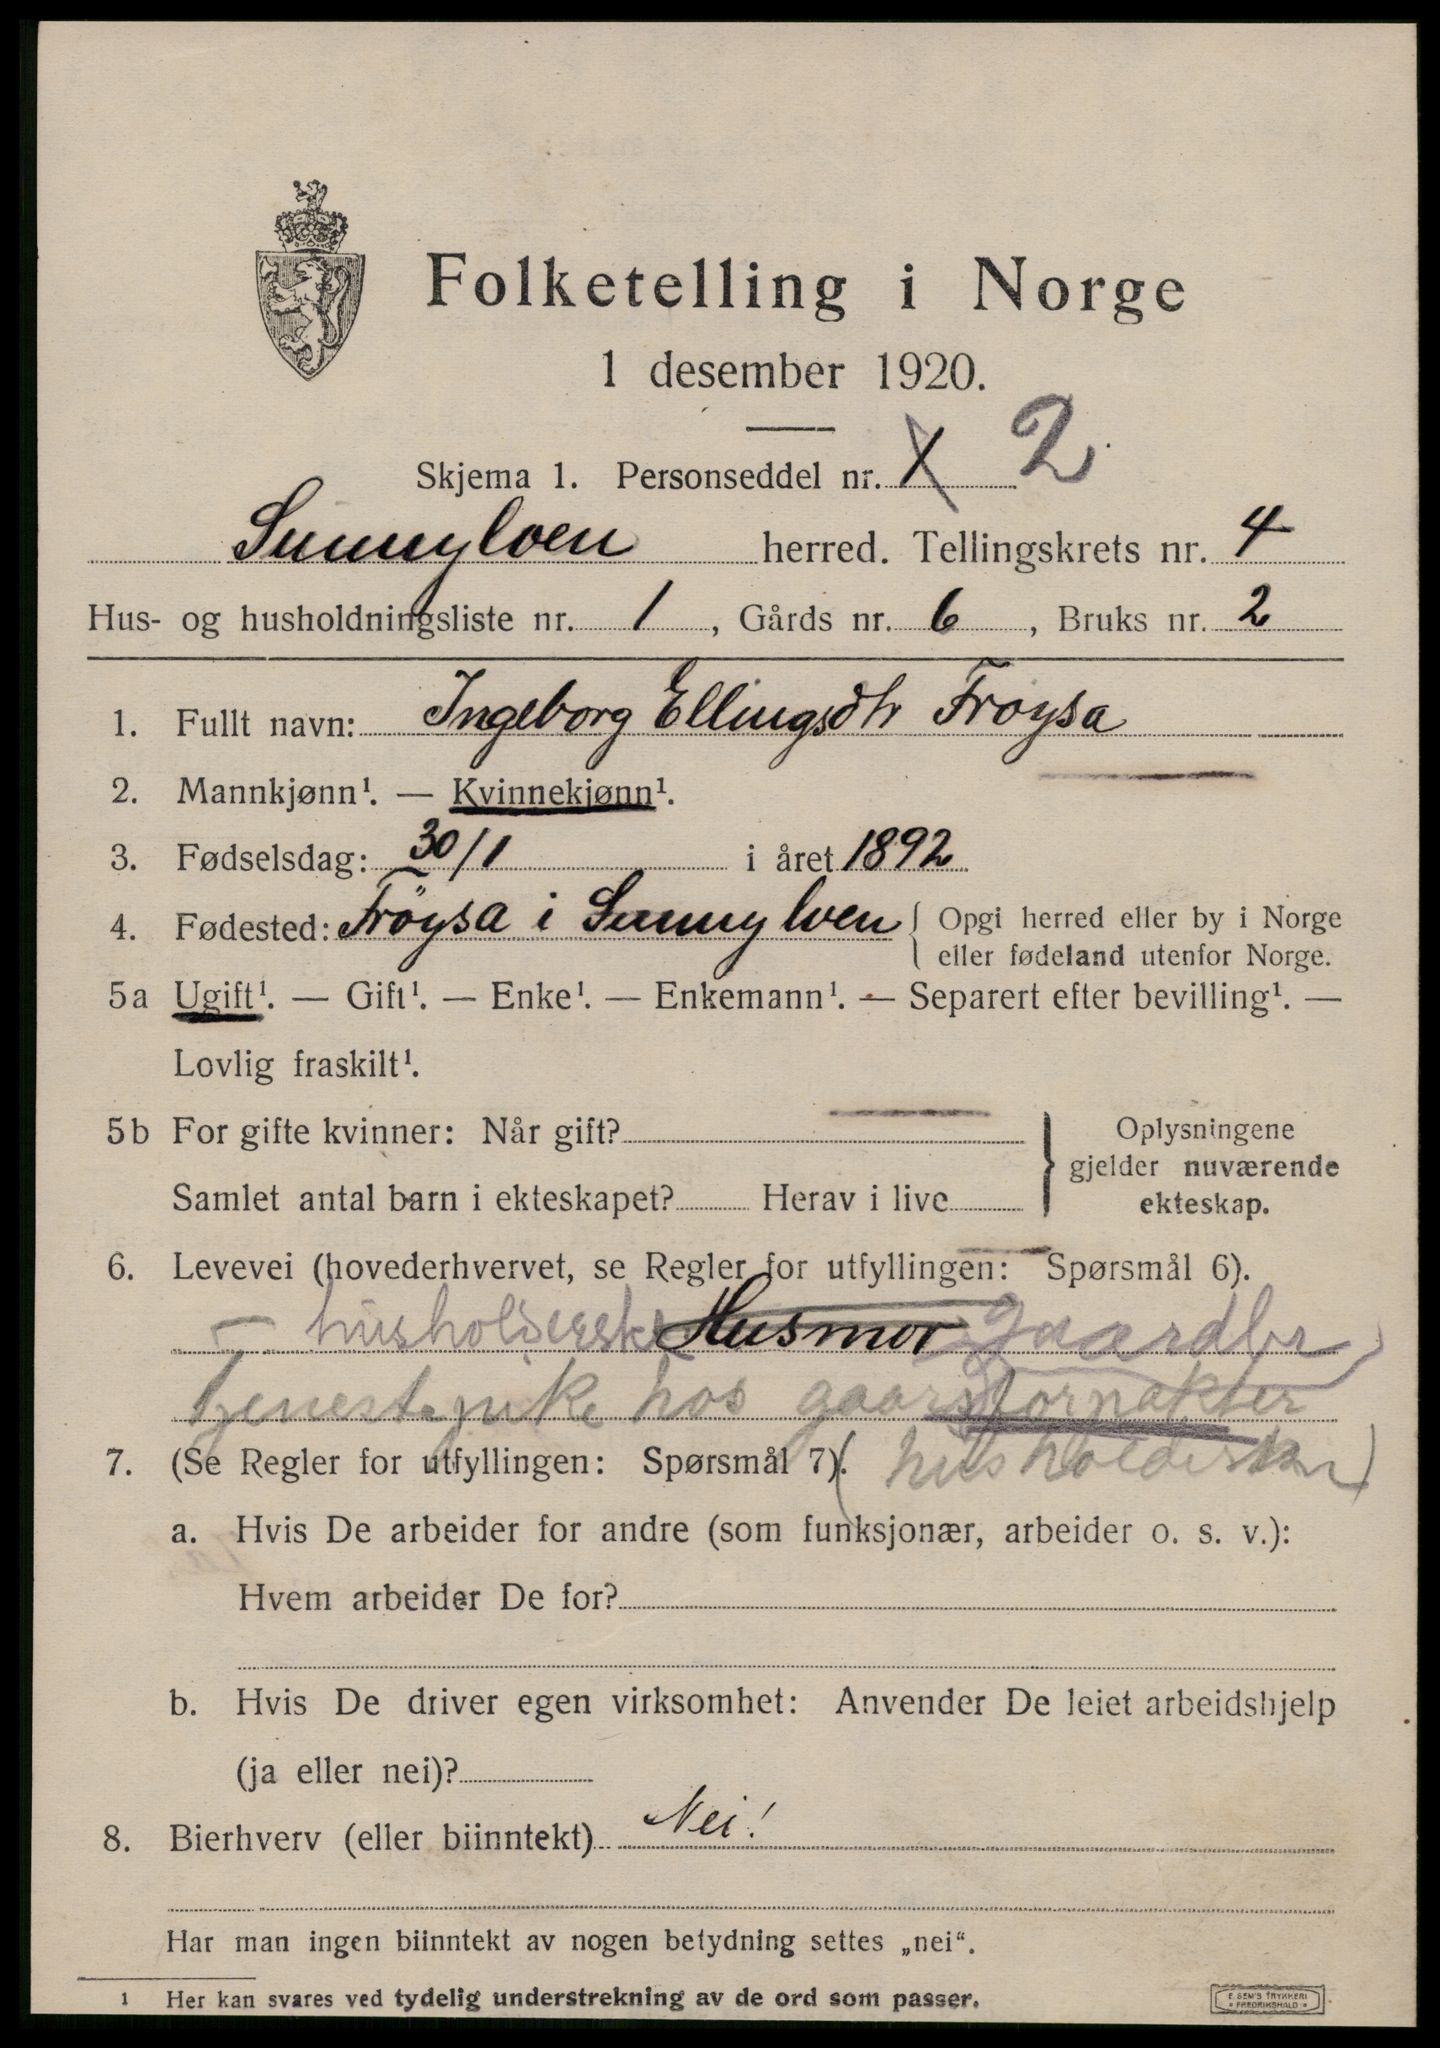 Folketelling i Norge
1 desember 1920.
Skjema 1. Personseddel nr. 1 2
Sunnylven herred. Tellingskrets nr. 4
Hus- og husholdningsliste nr. 1, Gårds nr. 6, Bruks nr. 2
1. Fullt navn: Ingeborg Ellingsdtr Frøysa
2. Mannkjønn¹. — Kvinnekjønn¹.
3. Fødselsdag: 30/1 i året 1892
4. Fødested: Fröysa i Sunnylven { Opgi herred eller by i Norge
eller fødeland utenfor Norge.
5a Ugift¹. — Gift¹. — Enke¹. — Enkemann¹. — Separert efter bevilling¹. —
Lovlig fraskilt¹.
5b For gifte kvinner: Når gift?
Samlet antal barn i ekteskapet? Herav i live
} Oplysningene
gjelder nuværende
ekteskap.
6. Levevei (hovederhvervet, se Regler for utfyllingen: Spørsmål 6).
— husholderske Husmor gaardbr
Tjenestepike hos gaardforpakter
(husholderske)
7. (Se Regler for utfyllingen: Spørsmål 7).
a. Hvis De arbeider for andre (som funksjonær, arbeider o. s. v.):
Hvem arbeider De for?
b. Hvis De driver egen virksomhet: Anvender De leiet arbeidshjelp
(ja eller nei)?
8. Bierhverv (eller biinntekt) Nei!
Har man ingen biinntekt av nogen betydning settes „nei“.
1 Her kan svares ved tydelig understrekning av de ord som passer.
E. SEM'S TRYKKERI
* FREDRIKSHALD *